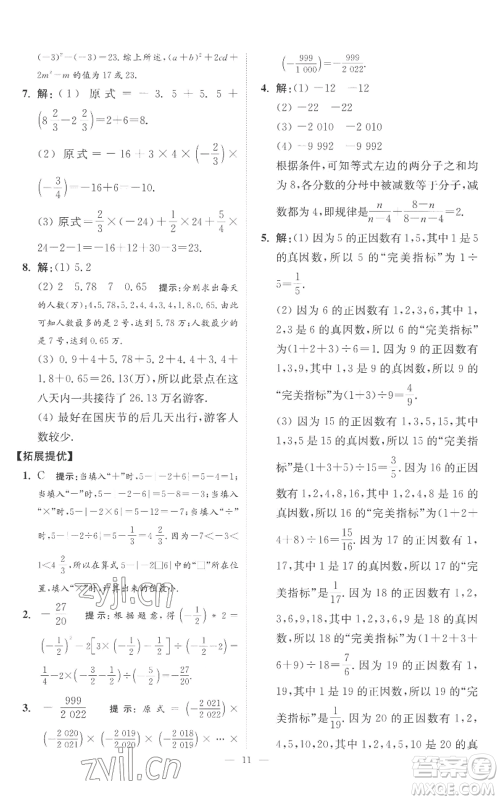 (-3)³-(-3)=23. 综上所述,(a+b)²+cd+
2m²-m 的值为 17 或 23.
7. 解:(1) 原式 = -3.5 + 5.5 +
(8 2/3 - 2 2/3) = 2+6=8.
(2) 原式 = -16 + 3 × 4 × (-2/3) ×
(-3/4) = -16+6=-10.
(3) 原式 = 3/8 × (-24) + 1/2 × 24 + 2/3 ×
24-2-1=-16+12+16-3=9.
8. 解:(1) 5.2
(2) 2 5.78 7 0.65 提示:分别求出每天
的人数(万)
的人数最多的是 2 号,达到 5.78 万;人数最少
的是 7 号,达到 0.65 万.
(3) 0.9+4+5.78+5.2+4+3.4+
2.2+0.65=26.13(万),所以此景点在
八天内一共接待了 26.13 万名游客.
(4) 最好在国庆节的节尾几天出行,游客人
数较少.
【拓展提优】
1. C 提示:当填入“+”时,5-|-2+6|=5-4=1;
当填入“-”时,5-|-2-6|=5-8=-3;当填入
“×”时,5-|-2×6|=5-12=-7;当填入“÷”
时,5-|-2÷6|=5-1/3=4 2/3. 因为-7<-3<
1<4 2/3,所以在算式 5-|-2□6|中的“□”里,
填入“×”时,计算出来的值最小.
2. -27/20 提示:根据题意,得 (-1/2) * 2 =
(-1/2)² - 2 × (-1/2)[(-1/2) - 2] ÷ (-1/2 - 2) =
1/4 - 2 × (-3/2) ÷ (-5/2) = -27/20.
3. -999/2 022 提示:原式 = (-2 021/2 022) ×
(-2 020/2 021) × (-2 019/2 020) × (-2 018/2 019) × ⋯ ×
(-999/1 000) = -999/2 022.
4. 解:(1) -12 -12
(2) -22 -22
(4) -9 992 -9 992
根据条件,可知等式左边的两分子之和
为 8,各分数的分母中被减数等于分子,减数
为 4,即规律是 n/(n-4) + (8-n)/(8-n-4) = 2.
5. 解:(1) 因为 5 的正因数有 1,5,其中 1
是 5 的真因数,所以 5 的“完美指标”是 1÷5=
1/5.
(2) 因为 6 的正因数有 1,2,3,6,其中 1,
2,3 是 6 的真因数,所以 6 的“完美指标”是
(1+2+3)÷6=1. 因为 9 的正因数有 1,3,
9,其中 1,3 是 9 的真因数,所以 9 的“完美指
标”是 (1+3)÷9=4/9.
(3) 因为 15 的正因数有 1,3,5,15,其中
1,3,5 是 15 的真因数,所以 15 的“完美指标”
是 (1+3+5)÷15=3/5. 因为 16 的正因数有
1,2,4,8,16,其中 1,2,4,8 是 16 的真因
数,所以 16 的“完美指标”是 (1+2+
4+8)÷16=15/16. 因为 17 的正因数有 1,17,
其中 1 是 17 的真因数,所以 17 的“完美指
标”是 1/17. 因为 18 的正因数有 1,2,3,6,9,
18,其中 1,2,3,6,9 是 18 的真因数,所以
18 的“完美指标”是 (1+2+3+
6+9)÷18=7/6. 因为 19 的正因数有 1,
19,其中 1 是 19 的真因数,所以 19 的“完美
指标”是 1/19. 因为 20 的正因数有 1,2,
4,5,10,20,其中 1,2,4,5,10 是 20 的真
11
zyjl.cn
zyjl.cn